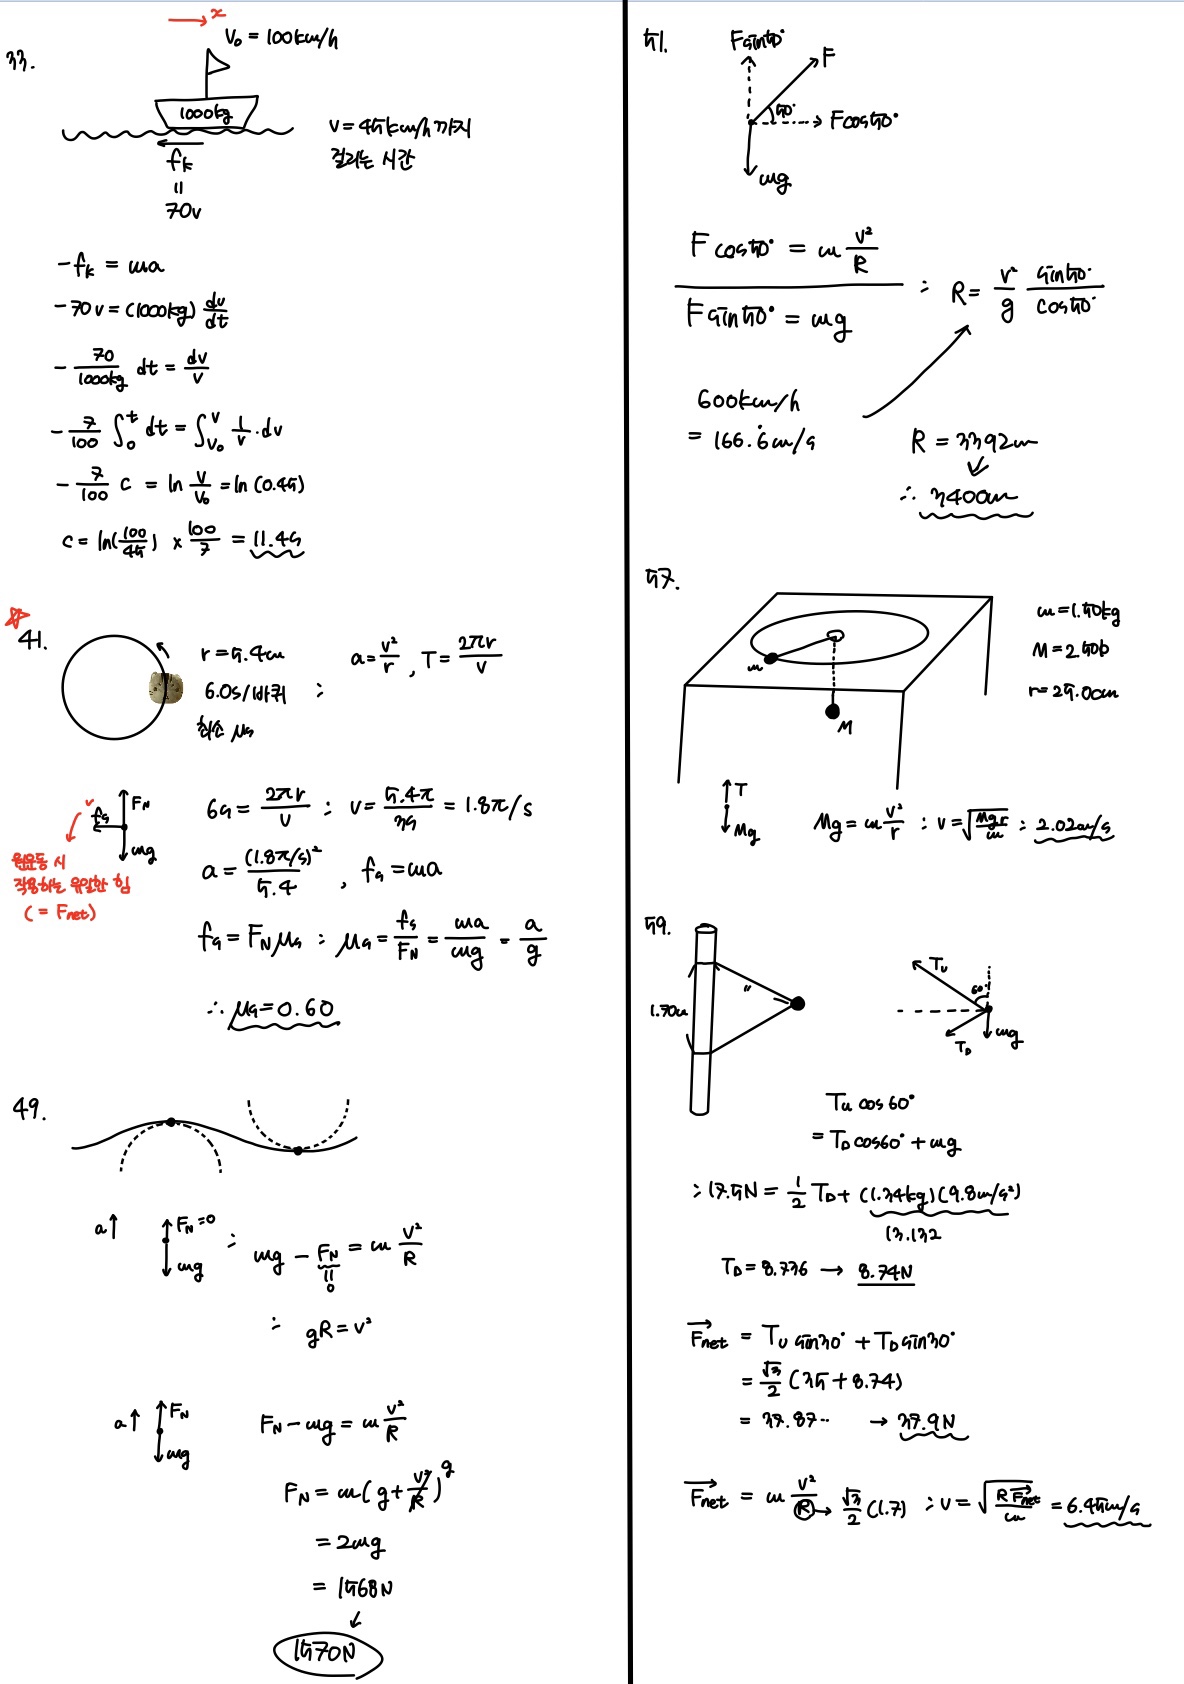 x
33.
V₀ = 100km/h
1000kg
v = 45km/h 까지
걸리는 시간
fk
=
70v
-fk = ma
-70v = (1000kg) dv/dt
- 70/1000kg dt = dv/v
- 7/100 ∫₀ᵗ dt = ∫ᵥ₀ᵛ 1/v · dv
- 7/100 t = ln v/v₀ = ln (0.45)
t = ln(100/45) × 100/7 = 11.4s
41.
r = 5.4m
6.0s/바퀴
최소 μs
∴
a = v²/r , T = 2πr/v
v
fs
FN
mg
원운동 시
작용하는 유일한 힘
( = Fnet)
6s = 2πr/v ∴ v = 5.4π/3s = 1.8π/s
a = (1.8π/s)²/5.4 , fs = ma
fs = FN μs ∴ μs = fs/FN = ma/mg = a/g
∴ μs = 0.60
49.
a↑
FN = 0
mg
∴ mg - FN = m v²/R
=
0
∴ gR = v²
a↑
FN
mg
FN - mg = m v²/R
FN = m(g + v²/R) g
= 2mg
= 1568N
1570N
51.
Fsin50°
F
50°
Fcos50°
mg
Fcos50° = m v²/R
Fsin50° = mg
∴ R = v²/g sin50°/cos50°
600km/h
= 166.6m/s
R = 3392m
∴ 3400m
57.
m
M
m = 1.50kg
M = 2.50b
r = 25.0cm
T
Mg
Mg = m v²/r ∴ v = √(Mgr/m) ∴ 2.02m/s
59.
1.70m
"
Tu
60°
TD
mg
Tu cos60°
= TD cos60° + mg
∴ 17.5N = 1/2 TD + (1.34kg)(9.8m/s²)
13.132
TD = 8.736 → 8.74N
Fnet = Tu sin30° + TD sin30°
= √3/2 (35 + 8.74)
= 37.87·· → 37.9N
Fnet = m v²/R → √3/2 (1.7) ∴ v = √(R Fnet/m) = 6.45m/s